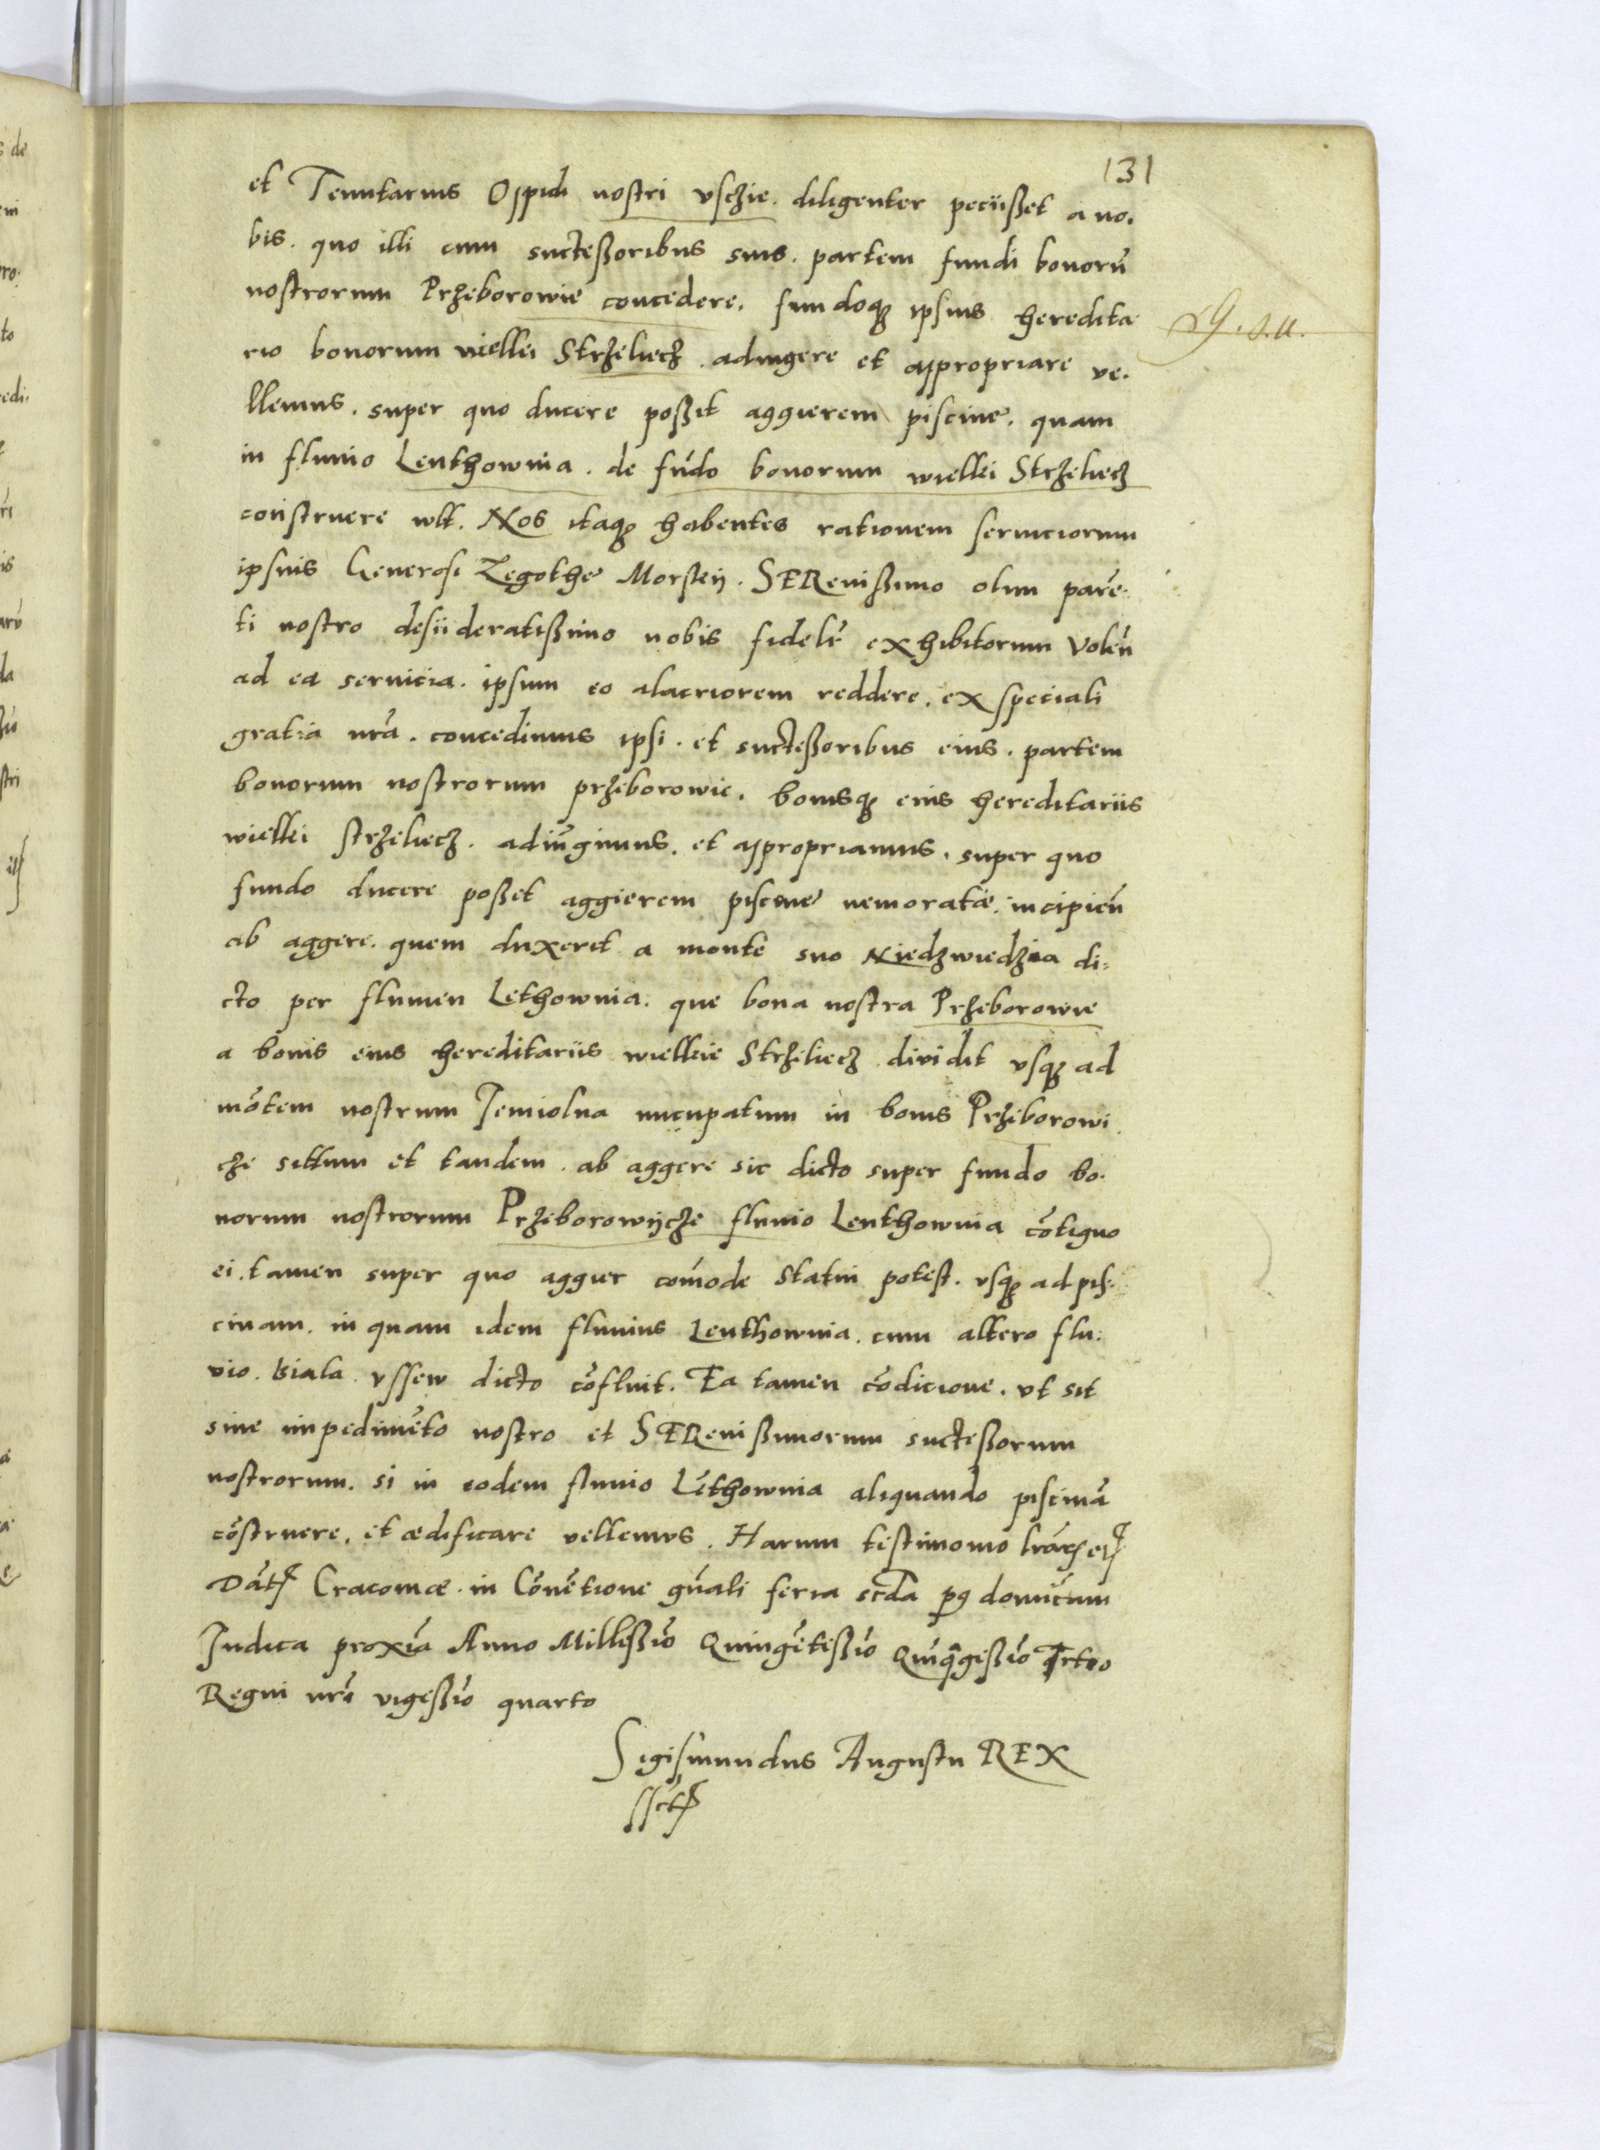 131
et Tenutarius Oppidi nostri vschie. diligenter peciisset a no.
bis. quo illi cum suctessoribus suis. partem fundi bonorū
nostrorum Przeborowie concedere. fundoqꝫ ipsius heredita
rio bonorum viellei Strzeliecz. adiugere et appropriare ve.
llemus. super quo ducere possit aggierem piscine. quam
in fluuio Lenthownia. de fūdo bonorum wiellei Strzeliecz
construere wlt. Nos itaqꝫ habentes rationem seruiciorum
ipsius Generosi Zegothe Morsteij. SERenissimo olim parē.
ti nostro desiideratissimo nobis fidelr̄ exhibitorum Volēn
ad ea seruicia. ipsum eo alacriorem reddere. ex speciali
gratia nrā. concedimus ipsi. et suctessoribus eius. partem
bonorum nostrorum przeborowie. bonisqꝫ eius hereditariis
wiellei strzeliecz. adiūgimus. et appropriamus. super quo
fundo ducere posset aggierem piscine nemoratæ. incipiēn
ab aggere. quem duxerit a monte suo Niedzwiedzia di=
cto per flumen Lethownia. que bona nostra Przeborowie
a bonis eius hereditariis wielleie Strzeliecz dividit vsqꝫ ad
mōtem nostrum Jemiolna nucupatum in bonis Przeborowi
cze sittum et tandem. ab aggere sic dicto super fundo bo.
norum nostrorum Przeborowijcze fluuio Lenthownia cōtiguo
ei. tamen super quo aggier comōde Statui potest. vsqꝫ ad pis.
cinam. in quam idem fluuius Lenthownia. cum altero flu.
vio. biala vssew dicto cōfluit. Ea tamen cōdicione. vt sit
sine impedimēto nostro et SERenissimorum suctessorum
nostrorum. si in eodem fluuio Lēthownia aliquando piscinā
cōstruere. et ædificare vellemus. Harum testimonio
Dāt Craconiæ. in Cōnētione gn̄ali feria scda pꝰ domīcam
Judica proxīa Anno Millessīo Quingētissīo Quīqgissīo qrto
Regni nrī vigessīo quarto
Sigismundus Augustu REX
sst